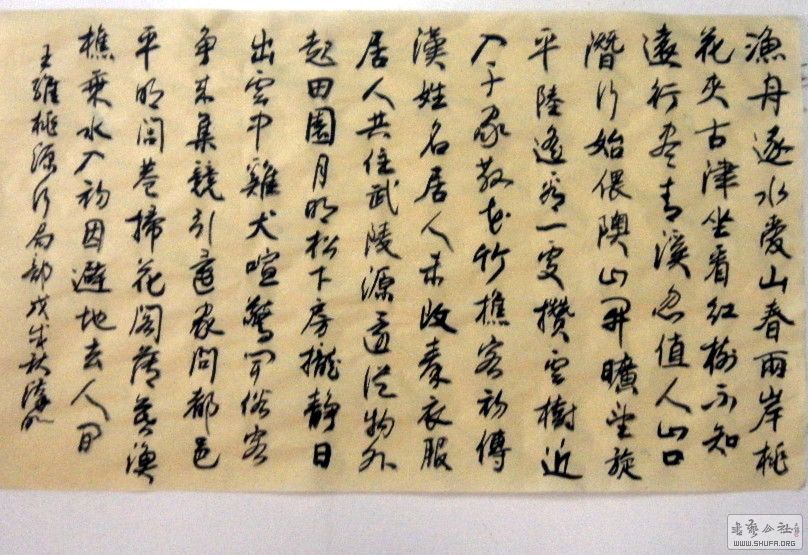 漁舟逐水愛山春兩岸桃
花夾古津坐看紅樹不知
遠行盡青溪忽值人山口
潛行始隈隩山開曠望旋
平陸遙看一處攢雲樹近
入千家散花竹樵客初傳
漢姓名居人未改秦衣服
居人共住武陵源還從物外
起田園月明松下房櫳靜日
出雲中雞犬喧驚聞俗客
爭來集競引還家問都邑
平明閭巷掃花開薄暮漁
樵乘水入初因避地去人間
王維桃源行局部戊戌秋
書藝公社
WWW.SHUFA.ORG